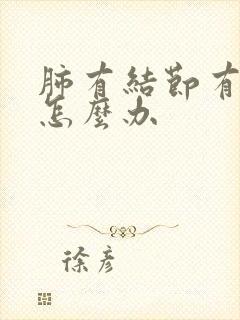 肺有結節有
怎麼办
徐彦